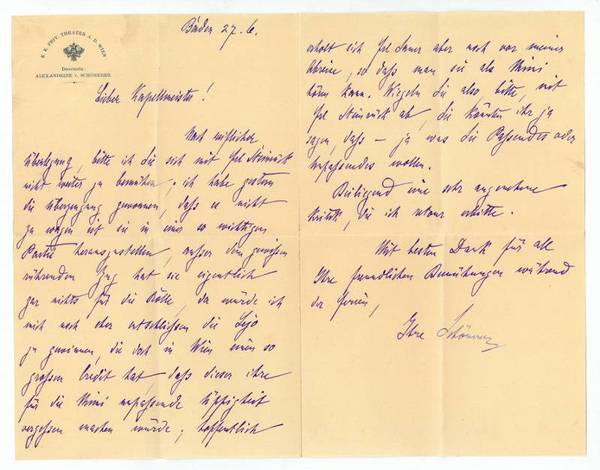 K. K. PRIV. THEATER A. D. WIEN
Direction:
ALEXANDRINE v. SCHÖNERER
Baden 27. 6.
Lieber Kapellmeister!
Nach reiflicher
Überlegung, bitte ich Sie sich mit Frl
nicht weiter zu bemühen; ich habe gestern
die Überzeugung gewonnen, daß es nicht
zu wagen ist sie in einer so wichtigen
Partie herauszustellen, außer dem gewissen
rührenden Zug hat sie eigentlich
gar nichts für die Rolle, da würde ich
mich noch eher entschließen die
zu gewinnen, die doch in Wien einen so
großen Credit hat daß dieser ihre
für die Mimi unpassende Üppigkeit
vergessen machen würde; hoffentlich
erholt sich Frl aber noch vor meiner
Abreise, so daß man sie als Mimi
hören kann. Wiegeln Sie also bitte, mit
Frl ab, Sie könnten ihr ja
sagen, daß – ja was Sie Passendes oder
unpassendes wollen.
Beiliegend eine sehr angenehme
Kritik, die ich retour erbitte.
Mit besten Dank für alle
Ihre freundlichen Bemühungen während
der Ferien,
Ihre Schönerer